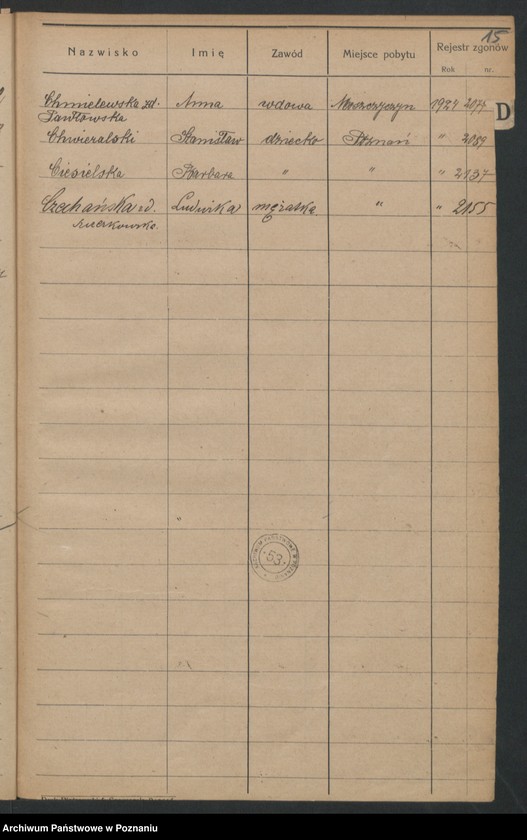 15
Nazwisko Imię Zawód Miejsce pobytu Rejestr zgonów
Rok nr.
Chmielewska zd. Anna wdowa 1924 2077
Pawłowska
D
Chwieralski Stanisław dziecko Poznań " 2089
Ciesielska Barbara " " " 2137
Czechańska zd. Ludwika mężatka " " 2155
53.
Archiwum Państwowe w Poznaniu